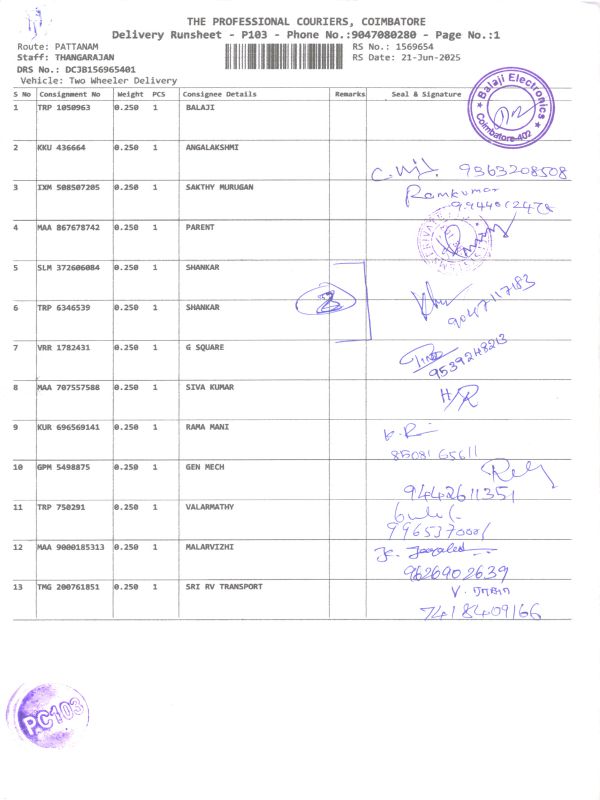 THE PROFESSIONAL COURIERS, COIMBATORE
Delivery Runsheet - P103 - Phone No.:9047080280 - Page No.:1
Route: PATTANAM
RS No.: 1569654
Staff: THANGARAJAN
RS Date: 21-Jun-2025
DRS No.: DCJB156965401
Vehicle: Two Wheeler Delivery
S No Consignment No Weight PCS Consignee Details Remarks Seal & Signature
Balaji Electronics
Coimbatore-402
1 TRP 1050963 0.250 1 BALAJI
2 KKU 436664 0.250 1 ANGALAKSHMI
9363208508
3 IXM 508507205 0.250 1 SAKTHY MURUGAN Ramkumar
4 MAA 867678742 0.250 1 PARENT
5 SLM 372606084 0.250 1 SHANKAR
9047117183
6 TRP 6346539 0.250 1 SHANKAR
7 VRR 1782431 0.250 1 G SQUARE
9539248213
8 MAA 707557588 0.250 1 SIVA KUMAR H/R
9 KUR 696569141 0.250 1 RAMA MANI
8508165611
10 GPM 5498875 0.250 1 GEN MECH
9442611351
11 TRP 750291 0.250 1 VALARMATHY
12 MAA 9000185313 0.250 1 MALARVIZHI
9626902639
13 TMG 200761851 0.250 1 SRI RV TRANSPORT
7418409166
PC103